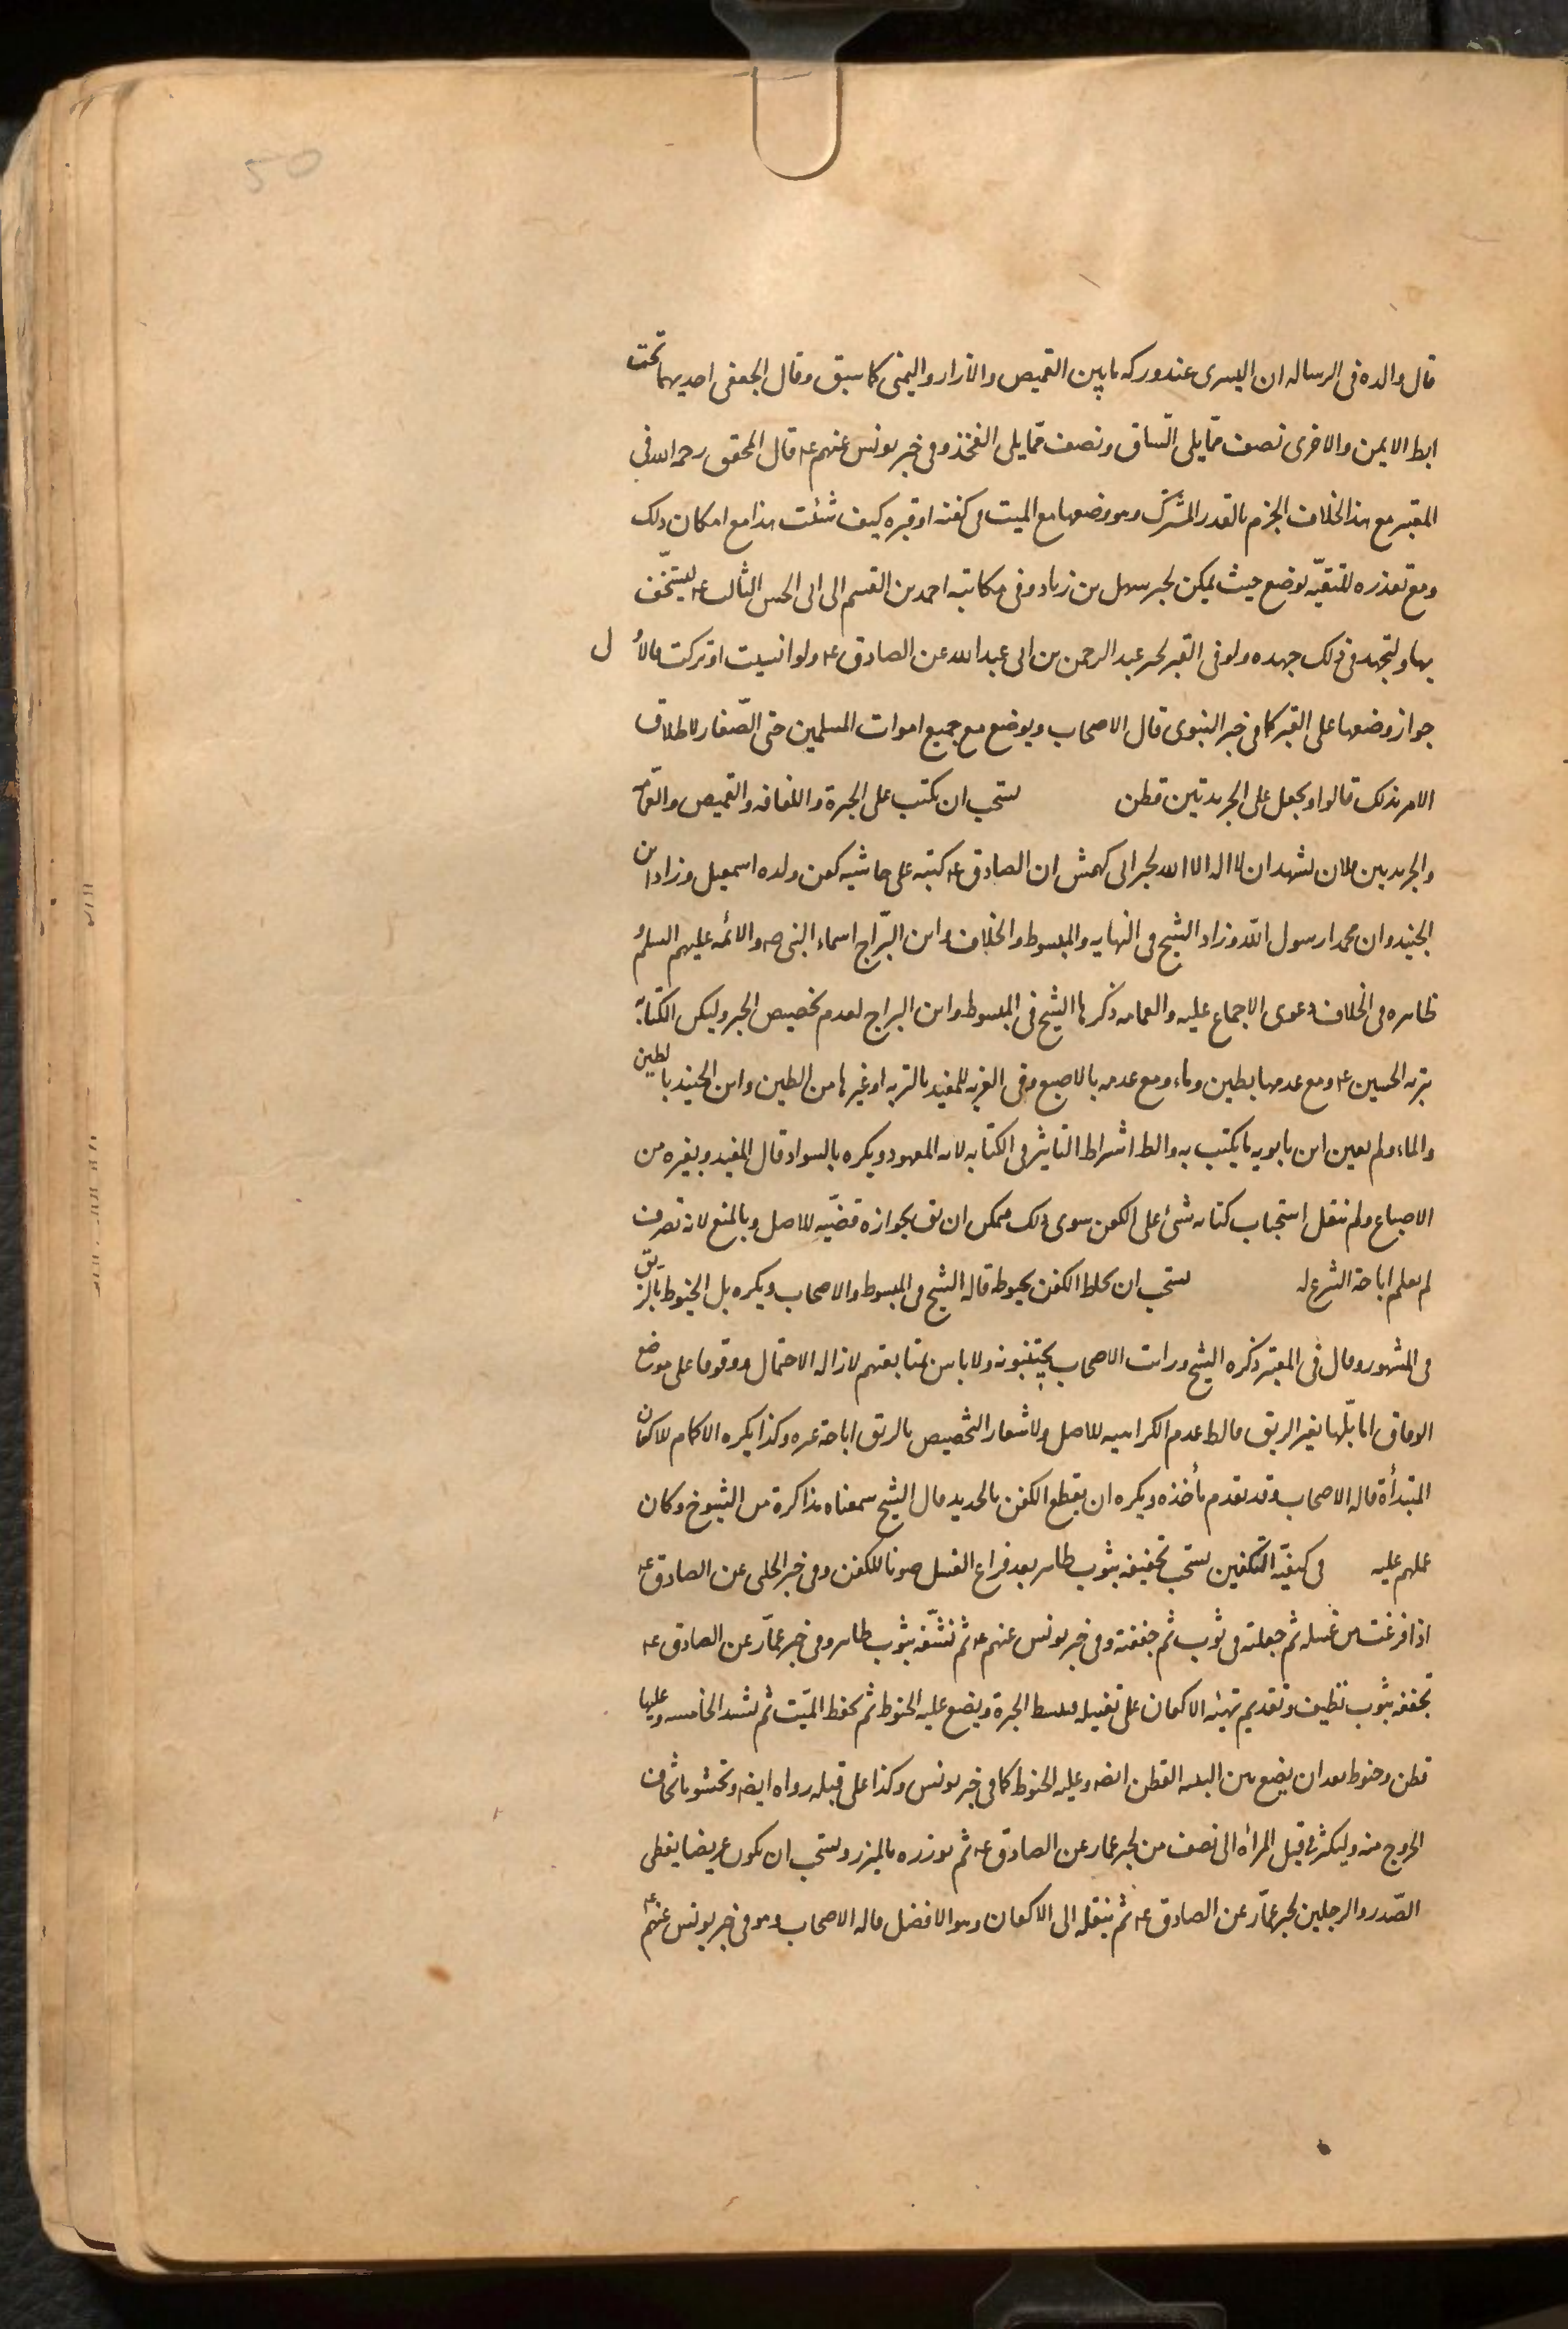 50
قال والده فی الرساله ان الیسری عند ورکه ما بین القمیص والازار والیمنی کما سبق وقال الجعفی احدیهما تحت
ابط الایمن والاخری نصف مما یلی الساق ونصف مما یلی الفخذ وفی خبر یونس عنهم ع قال المحقق رحمه الله فی
المعتبر مع هذا الخلاف الجزم بالقدر المشترک وهو وضعها مع المیت فی کفنه او قبره کیف شئت هذا مع امکان ذلک
ومع تعذره للتقیّه یوضع حیث یمکن لخبر سهل بن زیاد وفی مکاتبه احمد بن القسم الی ابی الحسن الثالث ع لیستخف
بها ولیجهد فی ذلک جهده ولو فی القبر لخبر عبد الرحمن بن ابی عبد الله عن الصادق ع ولو انسیت او ترکت فالاول
جواز وضعها علی القبر کما فی خبر النبوی قال الاصحاب ویوضع مع جمیع اموات المسلمین حتی الصّغار لاطلاق
الامر بذلک قالوا ویجعل علی الجریدتین قطن یستحب ان یکتب علی الحبرة واللفافه والقمیص والعمامه
والجریدتین فلان یشهد ان لا اله الا الله لخبر ابی کهمش ان الصادق ع کتبه علی حاشیه کفن ولده اسمعیل وزاد ابن
الجنید وان محمدا رسول الله وزاد الشیخ فی النهایه والمبسوط والخلاف وابن البرّاج اسماء النبی ص والائمه علیهم السلم و
ظاهره فی الخلاف دعوی الاجماع علیه والعمامه ذکرها الشیخ فی المبسوط وابن البراج لعدم تخصیص الخبر ولیکن الکتابة
بتربه الحسین ع ومع عدمها بطین وماء ومع عدمه بالاصبع وفی الغریه للمفید بالتربه او غیرها من الطین وابن الجنید بالطین
والماء ولم یعین ابن بابویه ما یکتب به والظ اشتراط التاثیر فی الکتابه لانه المعهود ویکره بالسواد قال المفید وبغیره من
الاصباغ ولم ینقل استحباب کتابه شئ علی الکفن سوی ذلک فیمکن ان یق بجوازه قضیّه للاصل وبالمنع لانه تصرف
لم یعلم اباحة الشرع له یستحب ان یخاط الکفن بخیوطه قاله الشیخ فی المبسوط والاصحاب ویکره بل الخیوط بالریق
فی المشهور وقال فی المعتبر ذکره الشیخ ورایت الاصحاب یجتنبونه ولا باس بمتابعتهم لازاله الاحتمال ووقوفا علی موضع
الوفاق اما بلّها بغیر الریق فالظ عدم الکراهیه للاصل ولاشعار التخصیص بالریق اباحة غیره وکذا یکره الاکمام للاکفان
المبتدأة قاله الاصحاب وقد تقدم مأخذه ویکره ان یقطع الکفن بالحدید قال الشیخ سمعناه مذاکرة من الشیوخ وکان
عملهم علیه فی کیفیّة التکفین یستحب تجفیفه بثوب طاهر بعد فراغ الغسل صونا للکفن وفی خبر الحلبی عن الصادق ع
اذا فرغت من غسله ثم جعلته فی ثوب ثم جففته وفی خبر یونس عنهم ع ثم نشّفه بثوب طاهر وفی خبر عمّار عن الصادق ع
تجففه بثوب نظیف وتقدیم تهیئه الاکفان علی تغسیله فیبسط الحبرة ویضع علیه الحنوط ثم یحفظ المیّت ثم یشد الخامسه وعلیها
قطن وحنوط بعد ان یضع بین الیتیه القطن ایضه وعلیه الحنوط کما فی خبر یونس وکذا علی قبله رواه ایضه وتحشو ما یخاف
الخروج منه ولیکثر فی قبل المرأه الی نصف من لخبر عمار عن الصادق ع ثم یوزره بالمیزر ویستحب ان یکون عریضا یغطی
الصّدر والرجلین لخبر عمّار عن الصادق ع ثم ینقله الی الاکفان وهو الافضل قاله الاصحاب وهو فی خبر یونس عنهم ع